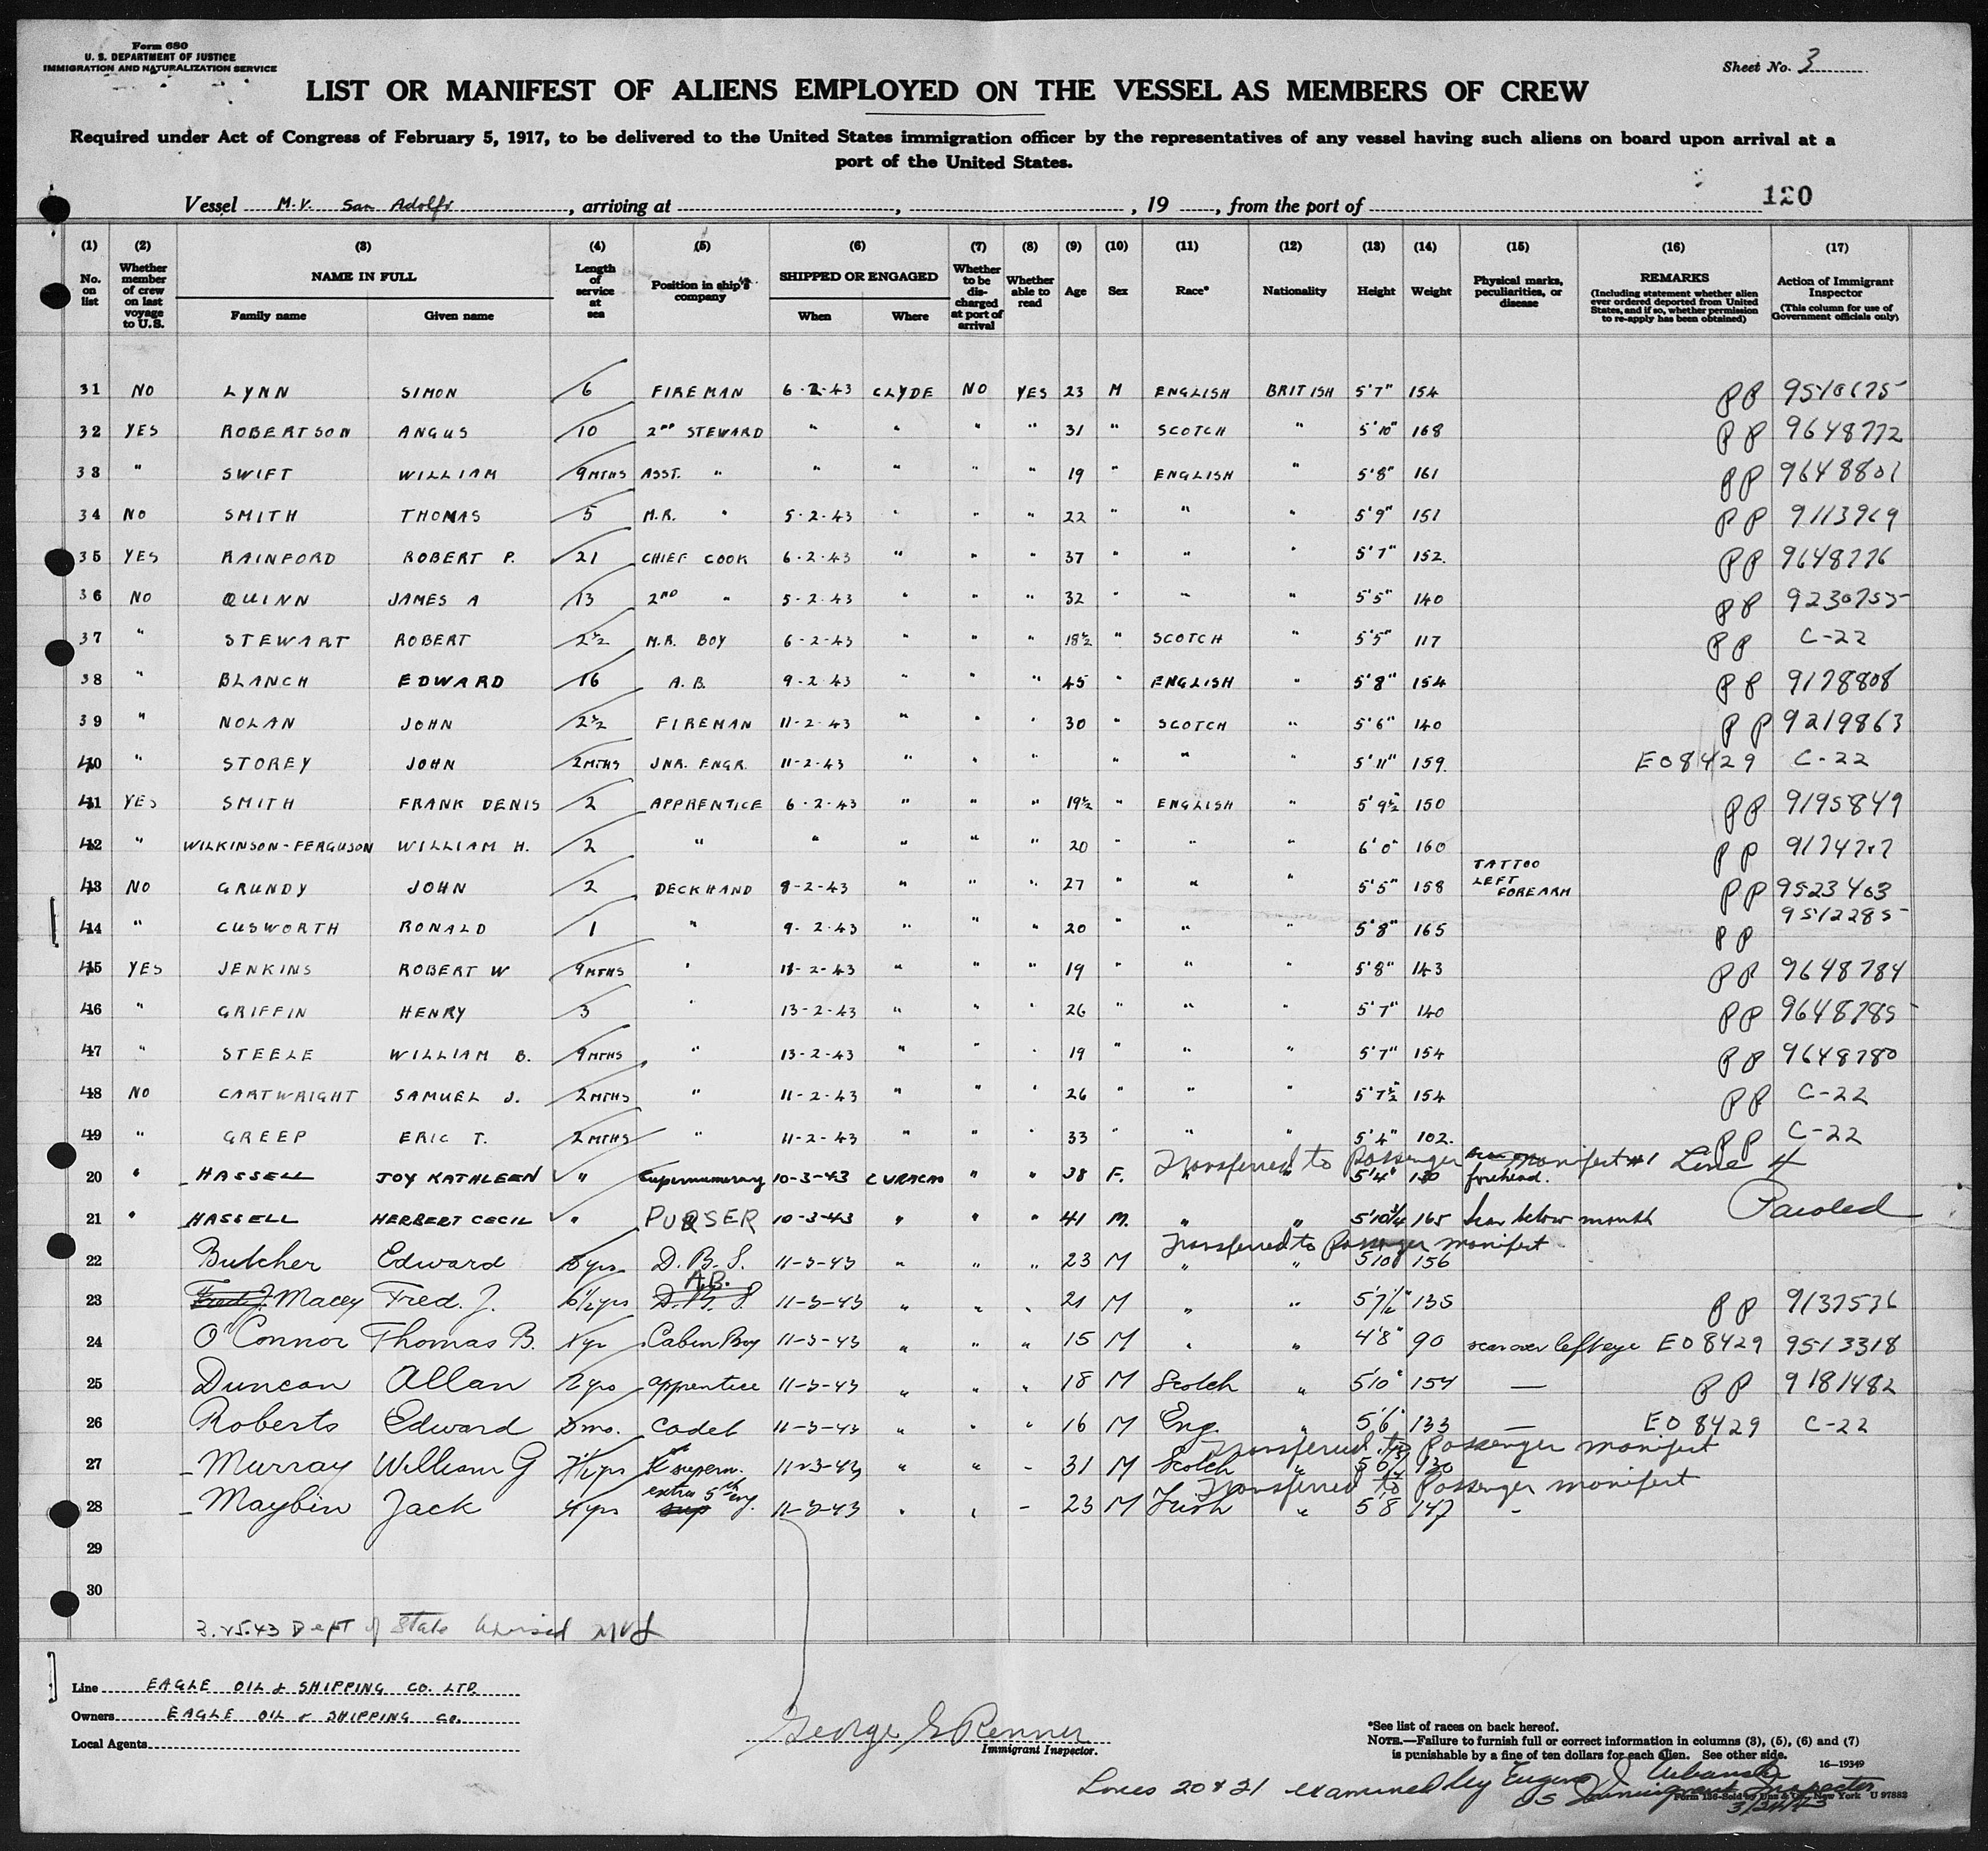 Form 680
U. S. DEPARTMENT OF JUSTICE
IMMIGRATION AND NATURALIZATION SERVICE
Sheet No. 3
LIST OR MANIFEST OF ALIENS EMPLOYED ON THE VESSEL AS MEMBERS OF CREW
Required under Act of Congress of February 5, 1917, to be delivered to the United States immigration officer by the representatives of any vessel having such aliens on board upon arrival at a
port of the United States.
120
Vessel M.V. San Adolfo, arriving at , , 19 , from the port of
(1) (2) (3) (4) (5) (6) (7) (8) (9) (10) (11) (12) (13) (14) (15) (16) (17)
No. on list | Whether member of crew on last voyage to U.S. | NAME IN FULL Family name Given name | Length of service at sea | Position in ship's company | SHIPPED OR ENGAGED When Where | Whether to be discharged at port of arrival | Whether able to read | Age | Sex | Race* | Nationality | Height | Weight | Physical marks, peculiarities, or disease | REMARKS (Including statement whether alien ever ordered deported from United States, and if so, whether permission to re-apply has been obtained) | Action of Immigrant Inspector (This column for use of Government officials only)
31 NO LYNN SIMON 6 FIREMAN 6-2-43 CLYDE NO YES 23 M ENGLISH BRITISH 5'7" 154 PP 9510675
32 YES ROBERTSON ANGUS 10 2ND STEWARD " " " " 31 " SCOTCH " 5'10" 168 PP 9648772
33 " SWIFT WILLIAM 9MTHS ASST. " " " " " 19 " ENGLISH " 5'8" 161 PP 9648801
34 NO SMITH THOMAS 5 M.R. " 5-2-43 " " " 22 " " " 5'9" 151 PP 9113969
35 YES RAINFORD ROBERT P. 21 CHIEF COOK 6-2-43 " " " 37 " " " 5'7" 152. PP 9648776
36 NO QUINN JAMES A 13 2ND " 5-2-43 " " " 32 " " " 5'5" 140 PP 9230755
37 " STEWART ROBERT 2½ M.R. BOY 6-2-43 " " " 18½ " SCOTCH " 5'5" 117 PP C-22
38 " BLANCH EDWARD 16 A.B. 9-2-43 " " " 45 " ENGLISH " 5'8" 154 PP 9178808
39 " NOLAN JOHN 2½ FIREMAN 11-2-43 " " " 30 " SCOTCH " 5'6" 140 PP 9219863
40 " STOREY JOHN 2MTHS JNR. ENGR. 11-2-43 " " " " " " 5'11" 159. EO8429 C-22
41 YES SMITH FRANK DENIS 2 APPRENTICE 6-2-43 " " " 19½ " ENGLISH " 5'9½" 150 PP 9195849
42 " WILKINSON-FERGUSON WILLIAM H. 2 " " " " " 20 " " " 6'0" 160 PP
43 NO GRUNDY JOHN 2 DECKHAND 8-2-43 " " " 27 " " " 5'5" 158 TATTOO LEFT FOREARM PP 9523463
44 " CUSWORTH RONALD 1 " 9-2-43 " " " 20 " " 5'8" 165 PP 9512285
45 YES JENKINS ROBERT W 9MTHS " 11-2-43 " " " 19 " " " 5'8" 143 PP 9648784
46 " GRIFFIN HENRY 3 " 13-2-43 " " " 26 " " " 5'7" 140 PP 9648785
47 " STEELE WILLIAM B. 9MTHS " 13-2-43 " " " 19 " " " 5'7" 154 PP 9648780
48 NO CARTWRIGHT SAMUEL J. 2MTHS " 11-2-43 " " " 26 " " " 5'7½" 154 PP C-22
49 " GREEP ERIC T. 2MTHS " 11-2-43 " " " 33 " " " 5'4" 102. PP C-22
Transferred to Passenger manifest #1 Line 4
20 " HASSELL JOY KATHLEEN " Supernumerary 10-3-43 CURACAO " " 28 F. " " 5'4" 130 forehead.
21 " HASSELL HERBERT CECIL " PURSER 10-3-43 " " " 41 M. " " 5'10¾ 165 scar below mouth Paroled
Transferred to Passenger manifest
22 Butcher Edward yrs D.B.S. 11-3-43 " " " 23 M " " 5'10 156
23 Fred J. Macey Fred. J. 6½yrs D.B.S. A.B. 11-3-43 " " " 21 M " " 5'7½" 135 PP 9137536
24 O'Connor Thomas B. 1yr Cabin Boy 11-3-43 " " " 15 M " " 4'8" 90 scar over left eye EO8429 9513318
25 Duncan Allan 2yrs apprentice 11-3-43 " " " 18 M Scotch " 5'10" 154 — PP 9181482
26 Roberts Edward 3mo. Cadet 11-3-43 " " " 16 M Eng. " 5'6" 133 — EO 8429 C-22
Transferred to Passenger manifest
27 Murray William G yrs supern. 11-3-43 " " - 31 M Scotch " 130
Transferred to Passenger manifest
28 Maybin Jack 4yrs extra 5th eng. sup 11-3-43 " " - 23 M Irish " 5'8 147 -
29
30
3.25.43 Dept of State Advised
Line EAGLE OIL & SHIPPING CO. LTD.
Owners EAGLE OIL & SHIPPING CO.
Local Agents
George G Renner
Immigrant Inspector.
*See list of races on back hereof.
NOTE.—Failure to furnish full or correct information in columns (3), (5), (6) and (7)
is punishable by a fine of ten dollars for each alien. See other side.
16—19349
Lines 20 & 21 examined by Eugene J Urbanski
US Immigrant Inspector
3/24/43